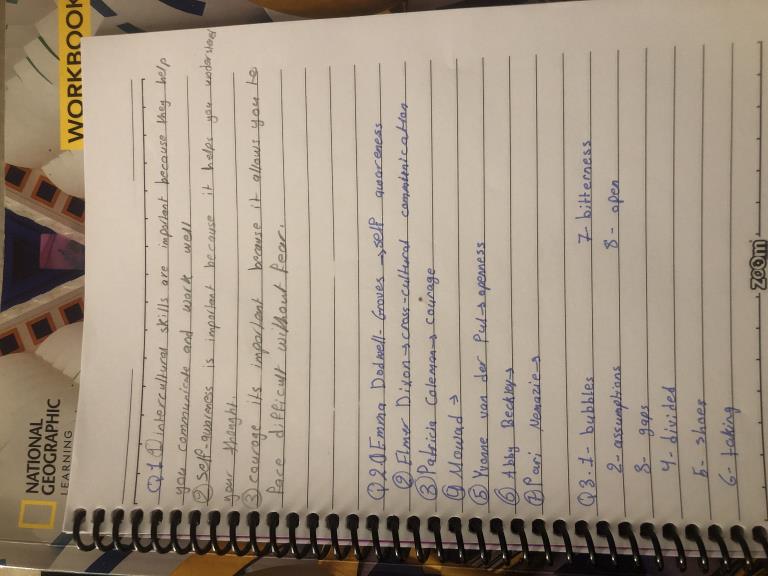 WORKBOOK
NATIONAL
GEOGRAPHIC
LEARNING
Q1 ① intercultural skills are important because they help
you communicate and work well
② self-awareness is important because it helps you understand
your thought.
③ courage its important because it allows you to
face difficult without fear.
Q2 ① Emma Dodwell-Groves → self awareness
② Elmer Dixon → cross-cultural communication
③ Patricia Coleman → courage
④ Mawad →
⑤ Yvonne van der Pul → openness
⑥ Abby →
⑦ Pari Namazie →
Q3: 1- bubbles 7- bitterness
2- assumptions 8- open
3- gaps
4- divided
5- shoes
6- taking
zoom